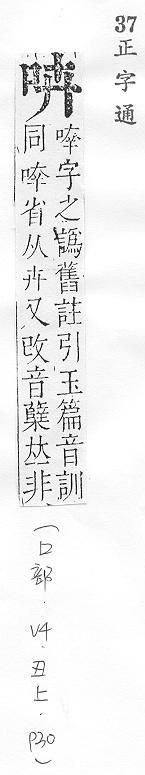 37
正字通
字之譌舊註引玉篇音訓
同省从卉又改音櫱𠀤非
(口部．V4．丑上．P30)